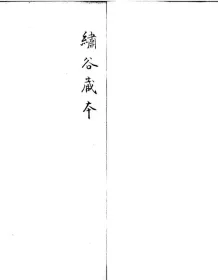 繡谷藏本